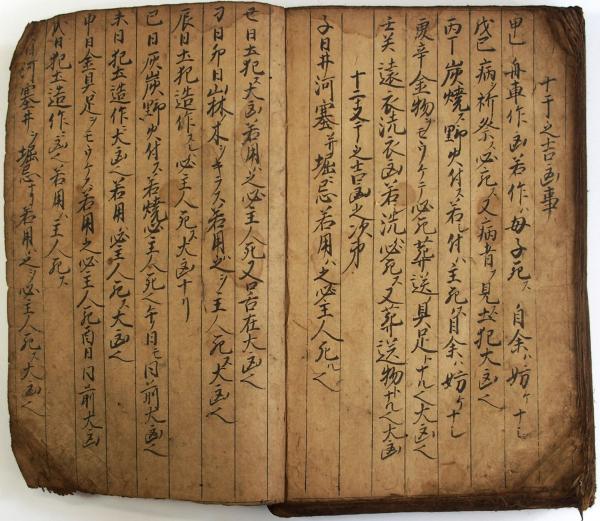 十干之吉凶事
甲乙 舟車作凶若作ハ母子死ス 自余ハ妨ケナシ
戊己 病ヲ祈祭ハ必死ス又病者ヲ見土犯大凶ヘ
丙丁 炭焼ス野火付ス若シ付ハ主死ス自余ハ妨ケナシ
庚辛 金物ヲモウケテニ必死葬送具足トナルヘ大凶ヘ
壬癸 遠衣洗衣凶若洗ハ必死ス又葬送物トナルヘ大凶
十二支之吉凶之次第
子日井河塞井堀ハ忌若用ハ之必主人死ルヘ
丑日土犯ス大凶若用ハ之必主人死又口舌在大凶ヘ
寅日卯日山林木ヲキラス若用之ヲ主人死ス大凶ヘ
辰日土犯造作ス必主人死ス大凶ナリ
巳日灰炭野火付ス若焼ハ必主人死ヘ午日モ同前大凶ヘ
未日犯土造作大凶ヘ若用ハ必主人死ス大凶ヘ
申日金具足ヲモウケス若用之必主人死酉日同前大凶
戌日犯土造作ハ凶ヘ若用ハ主人死ス
亥日河塞井ヲ堀忌ナリ若用ハ之ヲ必主人死ス大凶ヘ